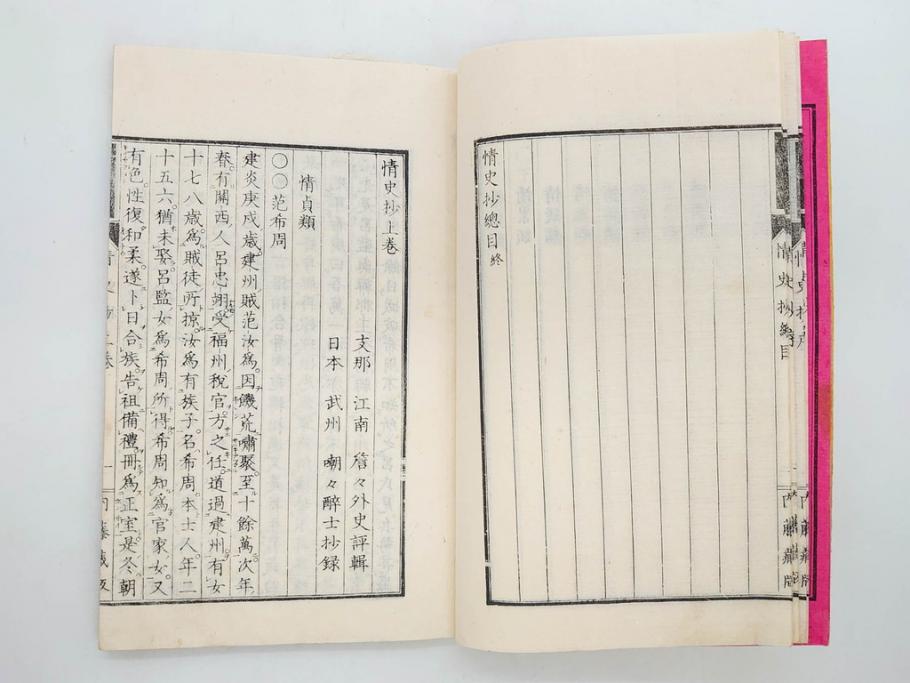 情史抄總目
内藤藏版
情史抄總目終
情史抄上卷
支那 江南 詹々外史評輯
日本 武州 嘲々醉士抄録
情貞類
〇〇范希周
建炎庚戌歲。建州賊范汝爲。因饑荒嘯聚。至十餘萬。次年
春。有關西人呂忠翊。受福州稅官。方之任。道過建州。有女
十七八歲。爲賊徒所掠。汝爲有族子。名希周。本士人。年二
十五六。猶未娶。呂監女爲希周所得。希周知爲官家女。又
有色。性復和柔。遂卜日合族。告祖備禮。冊爲正室。是冬。朝
内藤藏版